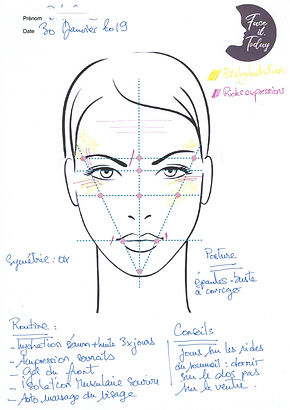 Prénom
Date 30 Janvier 2019
Face
it
Today
Rides expressions
Symétrie : ok
Posture
épaules + buste
à corriger
Routine :
- hydratation sérum + huile 3x jours
- Acupression sourcils
- Gel du front
- Isolation Musculaire
- Auto massage du visage
Conseils
jours sur les rides
du sommeil : dormir
sur le dos pas
sur le ventre.